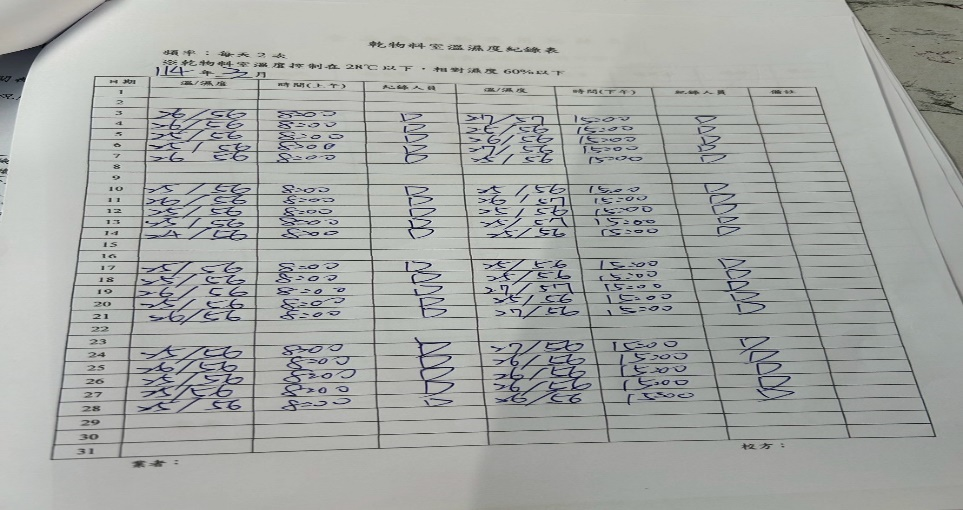 乾物料室溫濕度紀錄表
頻率：每天2次
※乾物料室溫度控制在28℃以下，相對濕度60%以下
114年3月
日期 溫/濕度 時間(上午) 紀錄人員 溫/濕度 時間(下午) 紀錄人員 備註
1
2
3 26/56 8:00 D 27/57 15:00 D
4 26/56 8:00 D 25/56 15:00 D
5 25/56 8:00 D 26/56 15:00 D
6 25/56 8:00 D 27/56 15:00 D
7 26 56 8:00 D 25/56 15:00 D
8
9
10 25/56 8:00 D 25/56 15:00 D
11 26/56 8:00 D 26/57 15:00 D
12 25/56 8:00 D 25/56 15:00 D
13 25/56 8:00 D 25/57 15:00 D
14 24/56 8:00 D 25/56 15:00 D
15
16
17 25/56 8:00 D 25/56 15:00 D
18 25/56 8:00 D 25/56 15:00 D
19 26/56 8:00 D 27/57 15:00 D
20 25/56 8:00 D 25/56 15:00 D
21 26/56 8:00 D 27/56 15:00 D
22
23
24 25/56 8:00 D 27/56 15:00 D
25 26/56 8:00 D 26/56 15:00 D
26 25/56 8:00 D 26/56 15:00 D
27 25/56 8:00 D 26/56 15:00 D
28 25/56 8:00 D 26/56 15:00 D
29
30
31
業者： 校方：